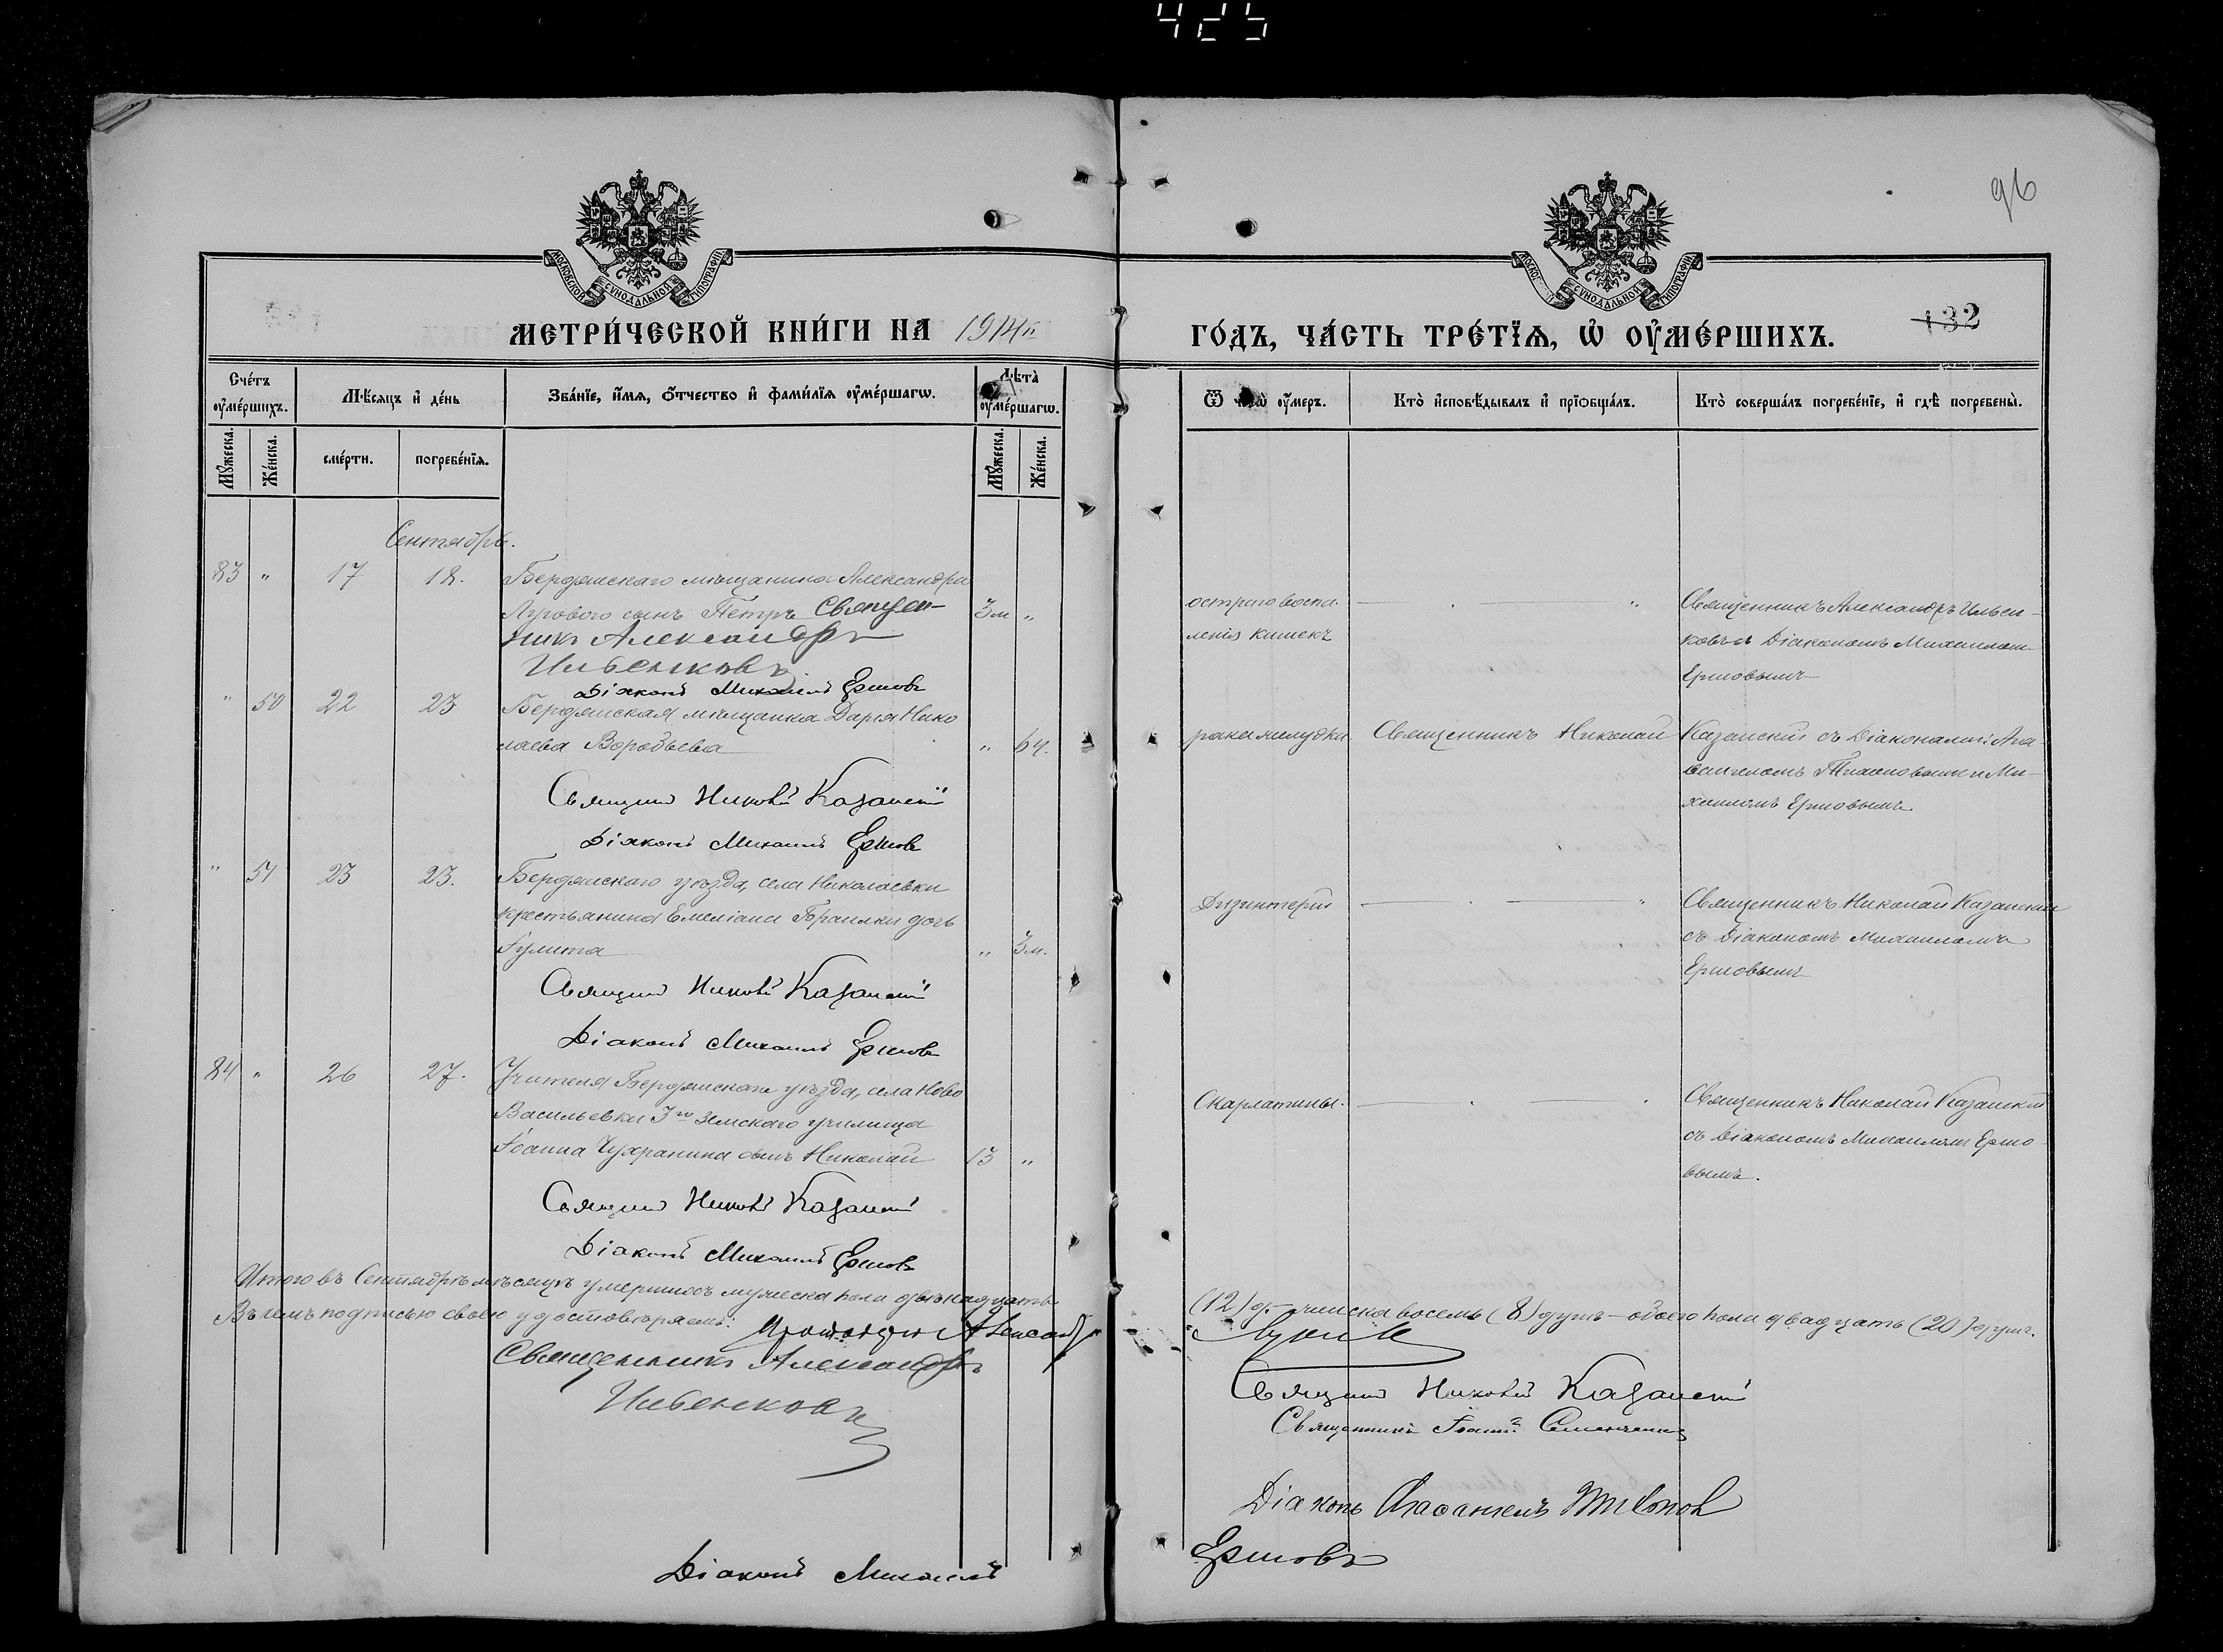 425
96
МОСКОВСКОЙ СѴНОДАЛЬНОЙ ТИПОГРАФІИ
МОСКОВСКОЙ СѴНОДАЛЬНОЙ ТИПОГРАФІИ
МЕТРИ́ЧЕСКОЙ КНИ́ГИ НА 1914й
ГО́ДЪ, ЧА́СТЬ ТРЕ́ТЇѦ, Ѡ҆ ОУ҆МЕ́РШИХЪ.
132
Сче́тъ оу҆ме́ршихъ.
Мѣ́сяцъ и҆ де́нь
Зва́нїе, и҆́мѧ, ѻ҆́тчество и҆ фами́лїѧ оу҆ме́ршагѡ.
Лѣта̀ оу҆ме́ршагѡ.
Ѿ чегѡ̀ оу҆́меръ.
Кто̀ и҆сповѣ́дывалъ и҆ прїѡбща́лъ.
Кто̀ соверша́лъ погребе́нїе, и҆ гдѣ̀ погребены̀.
Мꙋ́жеска.
Же́нска.
сме́рти.
погребе́нїѧ.
Мꙋ́жеска.
Же́нска.
Сентябрь.
83 " 17 18. Бердянскаго мѣщанина Александра
Лугового сынъ Петръ Священ- 3м "
никъ Александръ
Ильенковъ
Діаконъ Михаилъ Ершовъ
остраго воспа-
ленія кишекъ
Священникъ Александръ Ильен-
ковъ съ Діакономъ Михаиломъ
Ершовымъ
" 50 22 23 Бердянская мѣщанка Дарія Нико
лаева Воробьева " 64.
Священникъ Николай Казанскій
Діаконъ Михаилъ Ершовъ
рака желудка Священникъ Николай Казанскій съ Діаконами: Ага-
ѳангеломъ Тихоновымъ и Ми-
хаиломъ Ершовымъ
" 51 23 23. Бердянскаго уѣзда, села Николаевки
крестьянина Емеліана дочь
Іулита " 3м.
Священникъ Николай Казанскій
Діаконъ Михаилъ Ершовъ
Дизинтеріи
Священникъ Николай Казанскій
съ Діакономъ Михаиломъ
Ершовымъ
84 " 26 27. Учителя Бердянскаго уѣзда, села Ново
Васильевки 3го Земскаго училища
Іоанна Чухранина сынъ Николай 13 "
Священникъ Николай Казанскій
Діаконъ Михаилъ Ершовъ
Скарлатины.
Священникъ Николай Казанскій
съ Діакономъ Михаиломъ Ершо-
вымъ.
Итого въ Сентябрѣ мѣсяцѣ умершихъ мужеска пола двѣнадцать
(12) д. – женска восемь (8) душъ – обоего пола двадцать (20) душъ.
Въ чемъ подписью своею удостовѣряемъ:
Священникъ Александръ
Ильенковъ
Священникъ Николай Казанскій
Священникъ Іоаннъ
Діаконъ Агаѳангелъ Тихонов
Діаконъ Михаилъ
Ершовъ